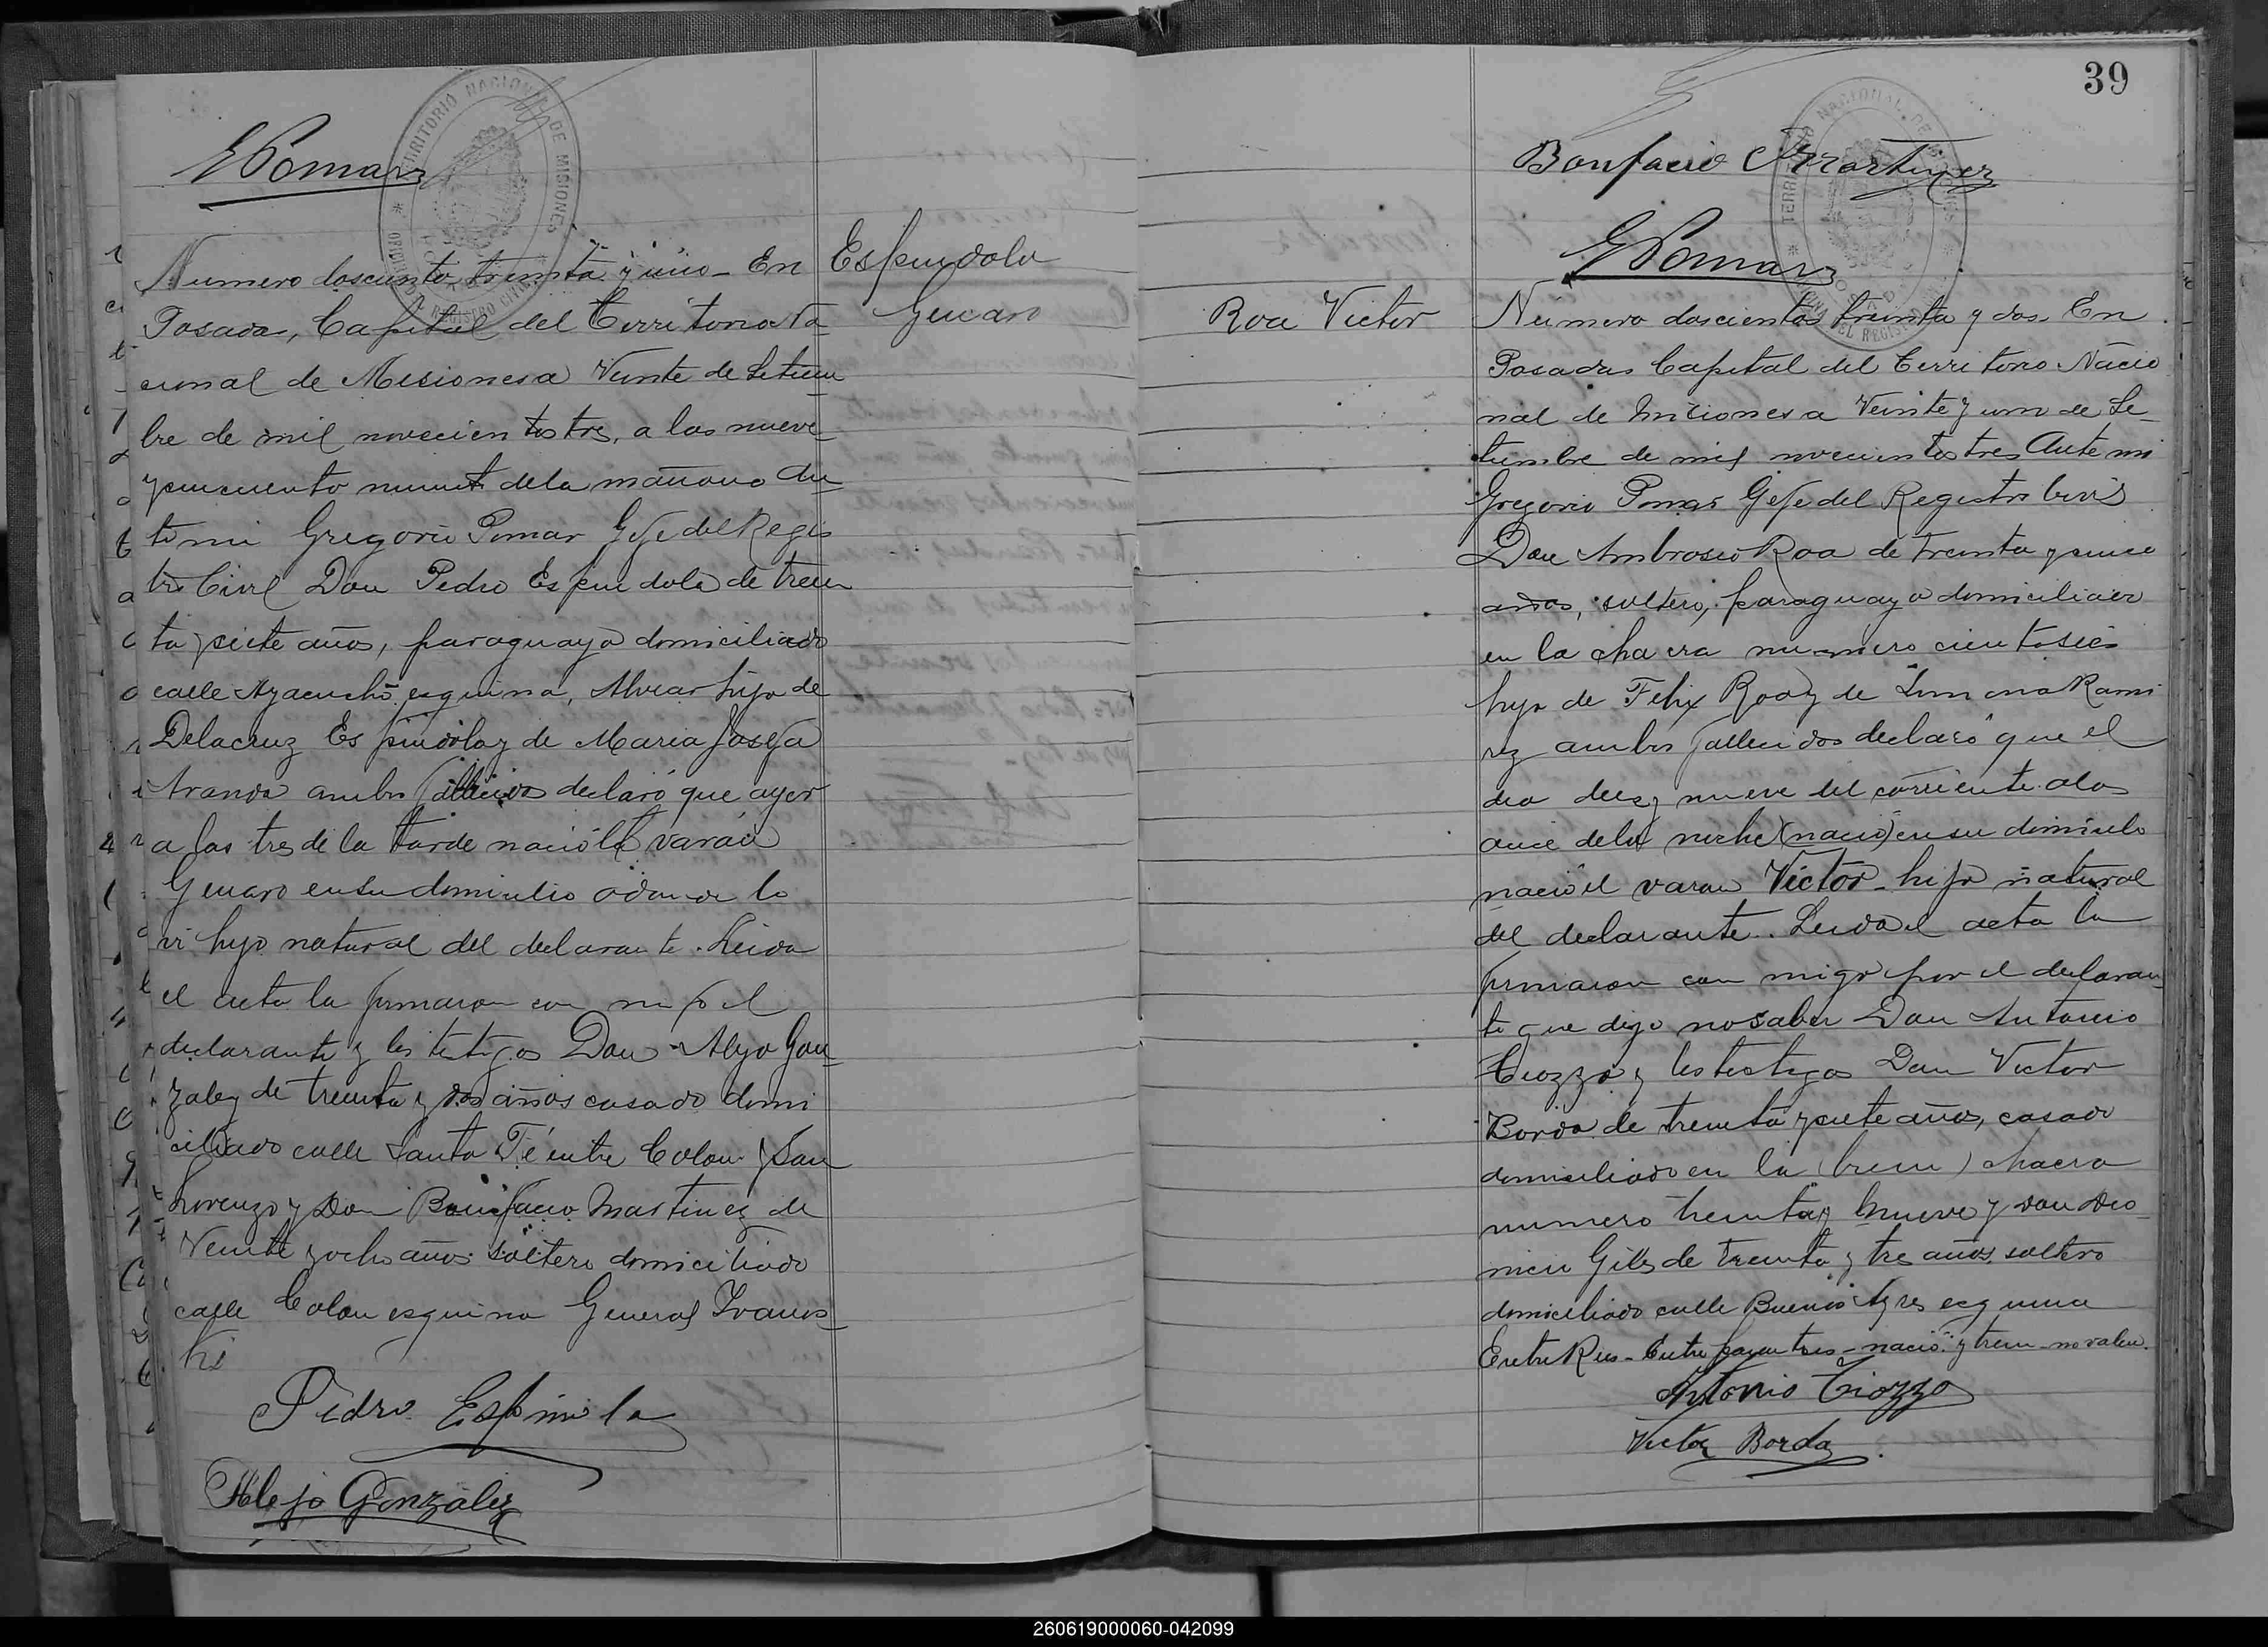 GPomar
TERRITORIO NACIONAL DE MISIONES
OFICINA DEL REGISTRO CIVIL
Espindola
Genaro
Numero doscientos treinta y uno - En
Posadas, Capital del Territorio Na
cional de Misiones a Veinte de Setiem
bre de mil novecientos tres, a las nueve
y cincuenta minut de la mañana An
te mi Gregorio Pomar Gefe del Regis
tro Civil Don Pedro Espindola de trein
ta y siete años, paraguayo domiciliado
calle Ayacucho esquina, Alvear hijo de
Delacruz Espindola y de Maria Josefa
Aranda ambos fallecidos declaró que ayer
a las tres de la tarde nació el varón
Genaro en su domicilio adonde lo
vi hijo natural del declarante. Leida
el acta la firmaron con migo el
declarante y los testigos Don Alejo Gon
zalez de treinta y dos años casado domi
ciliado calle Santa Fé entre Colon y San
Lorenzo y Don Bonifacio Martinez de
Veinte y ocho años soltero domiciliado
calle Colon esquina General Ivanos
ki
Pedro Espinola
Alejo González
39
Bonifacio Martinez
GPomar
TERRITORIO NACIONAL DE MISIONES
OFICINA DEL REGISTRO CIVIL
Roa Victor
Numero doscientos treinta y dos. En
Posadas Capital del Territorio Nacio
nal de Misiones a Veinte y uno de Se
tiembre de mil novecientos tres Ante mi
Gregorio Pomar Gefe del Registro Civil
Don Ambrosio Roa de treinta y cinco
años, soltero, paraguayo domiciliado
en la chacra numero ciento seis
hijo de Felix Roa y de Rami
rez ambos fallecidos declaró que el
dia diez y nueve del corriente a las
once de la noche (nació) en su domicilio
nació el varon Víctor hijo natural
del declarante. Leida el acta la
firmaron con migo por el declaran
te que dijo no saber Don Antonio
Tiozzo y los testigos Don Victor
Borda de treinta y siete años, casado
domiciliado en la (trein) chacra
numero treinta y nueve y don Dio
nicio Giles de treinta y tres años, soltero
domiciliado calle Buenos Ayres esquina
Entre Rios - Entre parentesis - nació y trein - no valen.
Antonio Tiozzo
Victor Borda
260619000060-042099